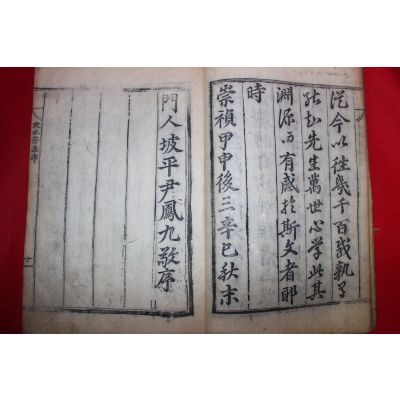 從今以往幾千百歲孰不
先生萬世心學此其
淵源而有感於斯文者耶
時
崇禎甲申後三辛巳秋末
門人坡平尹鳳九敬序
寒水齋集序